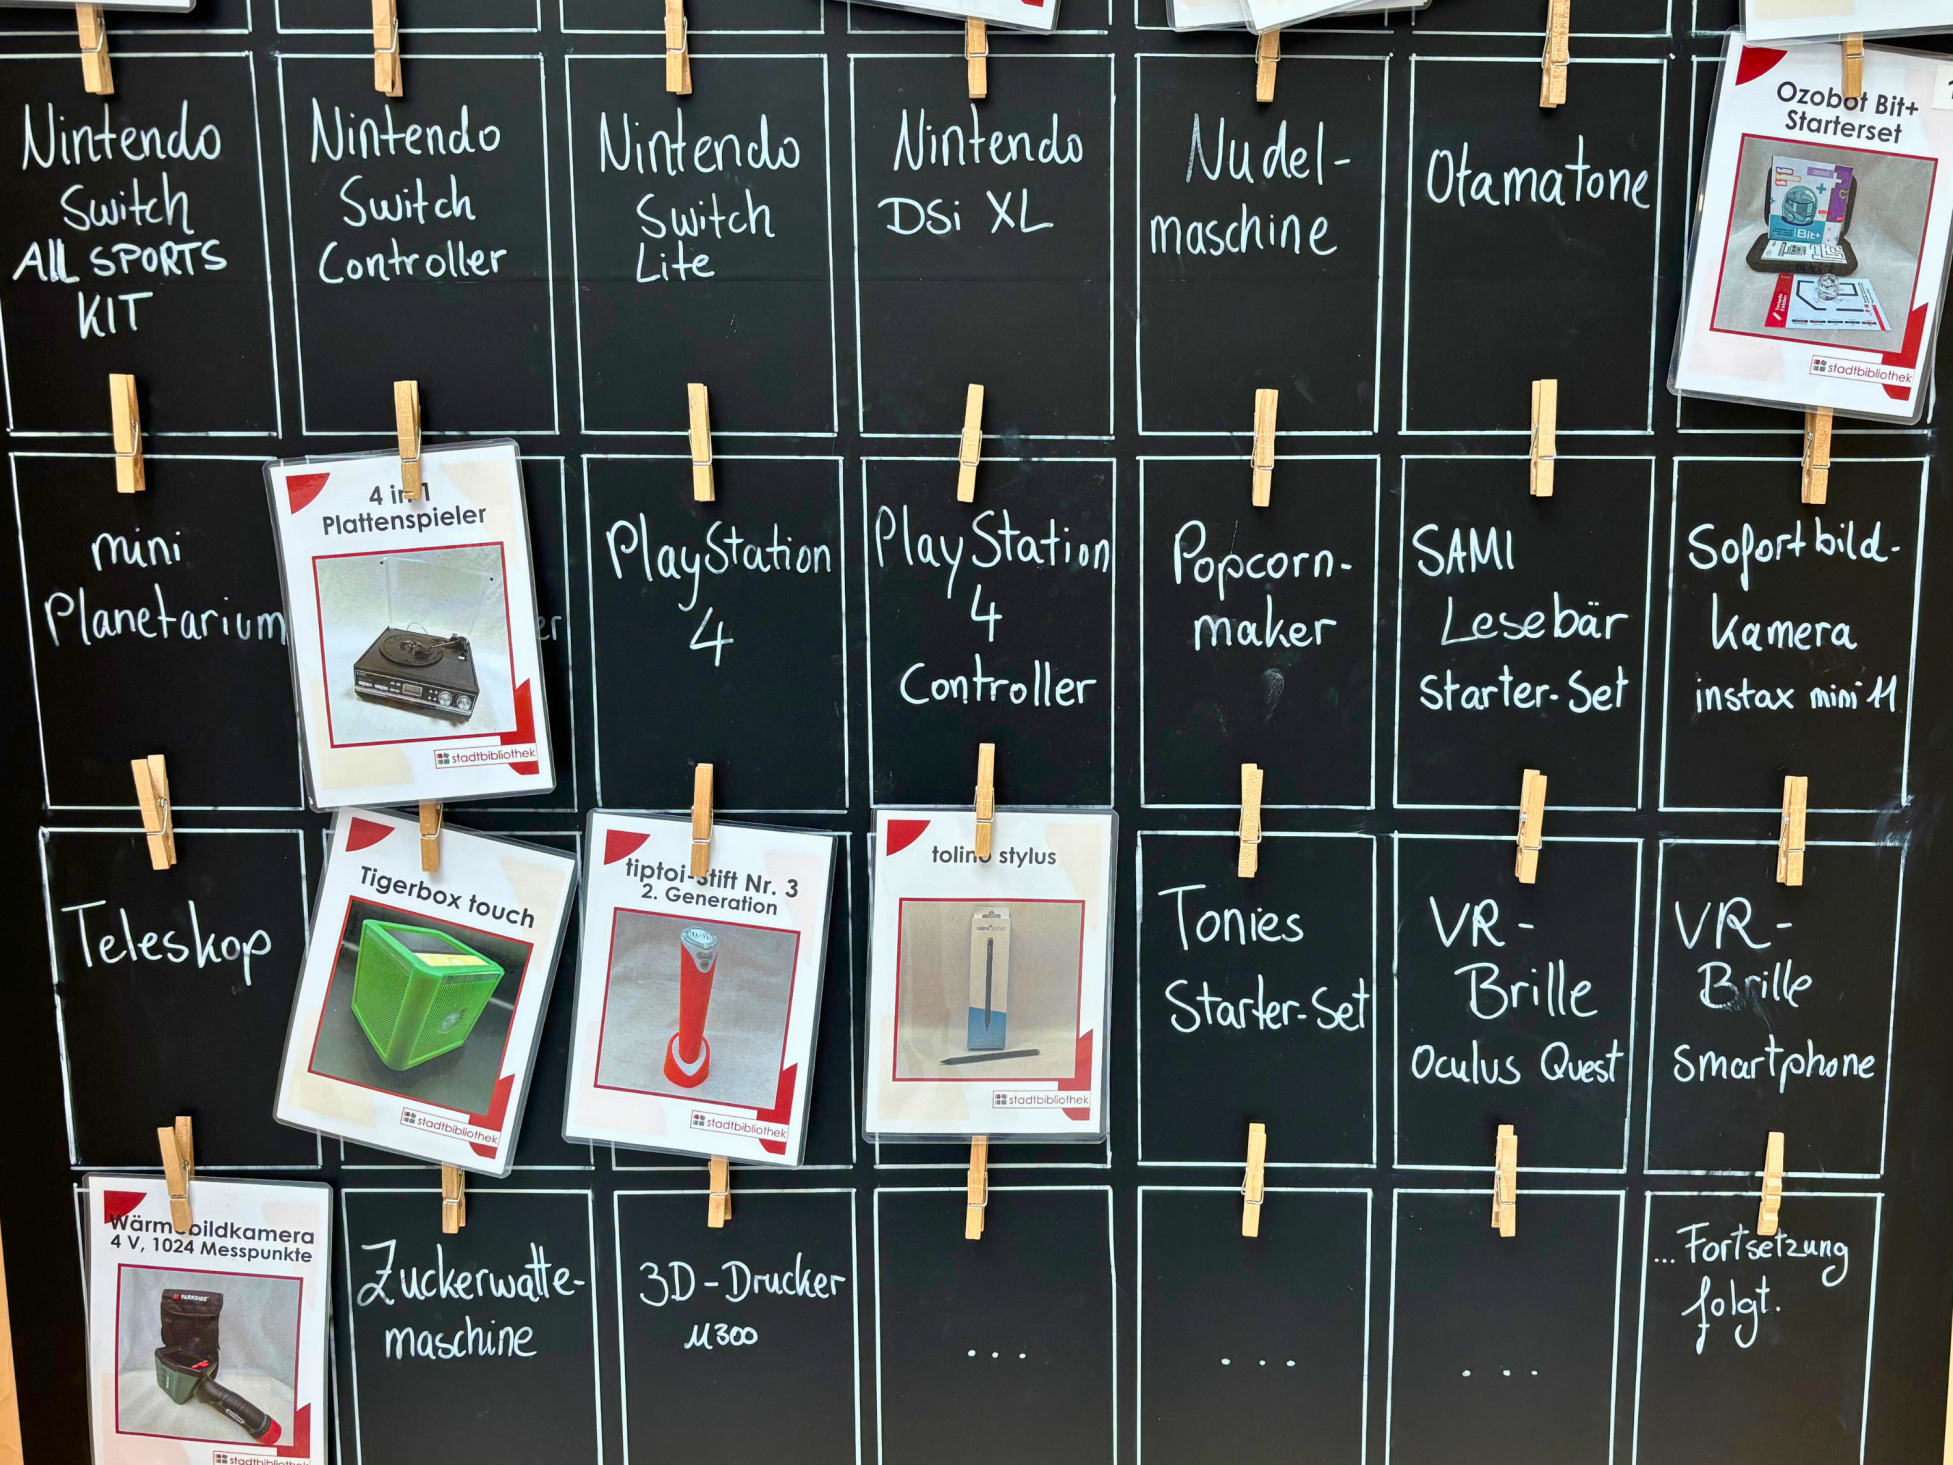 Nintendo
Switch
All SPORTS
KIT
Nintendo
Switch
Controller
Nintendo
Switch
Lite
Nintendo
DSi XL
Nudel-
maschine
Otamatone
Ozobot Bit+
Starterset
Bit+
stadtbibliothek
mini
Planetarium
4 in 1
Plattenspieler
stadtbibliothek
er
PlayStation
4
PlayStation
4
Controller
Popcorn-
maker
SAMI
Lesebär
Starter-Set
Sofortbild-
kamera
instax mini 11
Teleskop
Tigerbox touch
stadtbibliothek
tiptoi-Stift Nr. 3
2. Generation
stadtbibliothek
tolino stylus
stadtbibliothek
Tonies
Starter-Set
VR-
Brille
Oculus Quest
VR-
Brille
Smartphone
Wärmebildkamera
4 V, 1024 Messpunkte
PARKSIDE
stadtbibliothek
Zuckerwatte-
maschine
3D-Drucker
M300
...
...
...
... Fortsetzung
folgt.